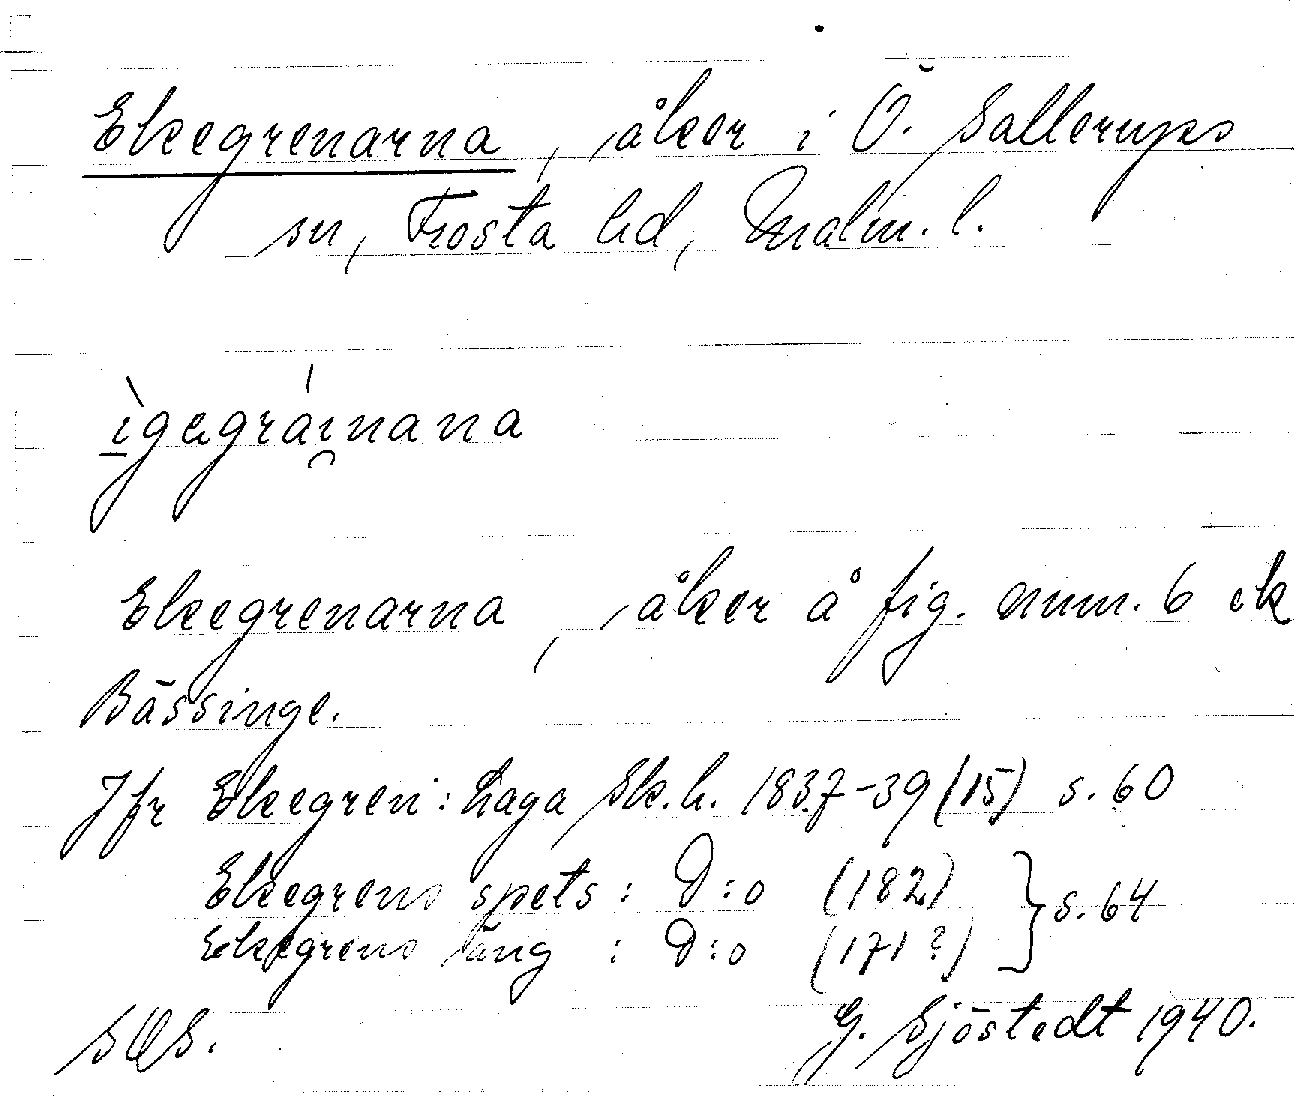 Ekegrenarna, åker i Ö. Sallerups
sn, Frosta hd, Malm. l.
ìgagráınana
Ekegrenarna, åker å fig. num. 6 ek
Bässinge.
Jfr Ekegren: Laga Sk.h. 1837-39 (15) s. 60
Ekegrens spets: D:o (182) } s. 64
Ekegrens äng : D:o (171?)
SOS. G. Sjöstedt 1940.